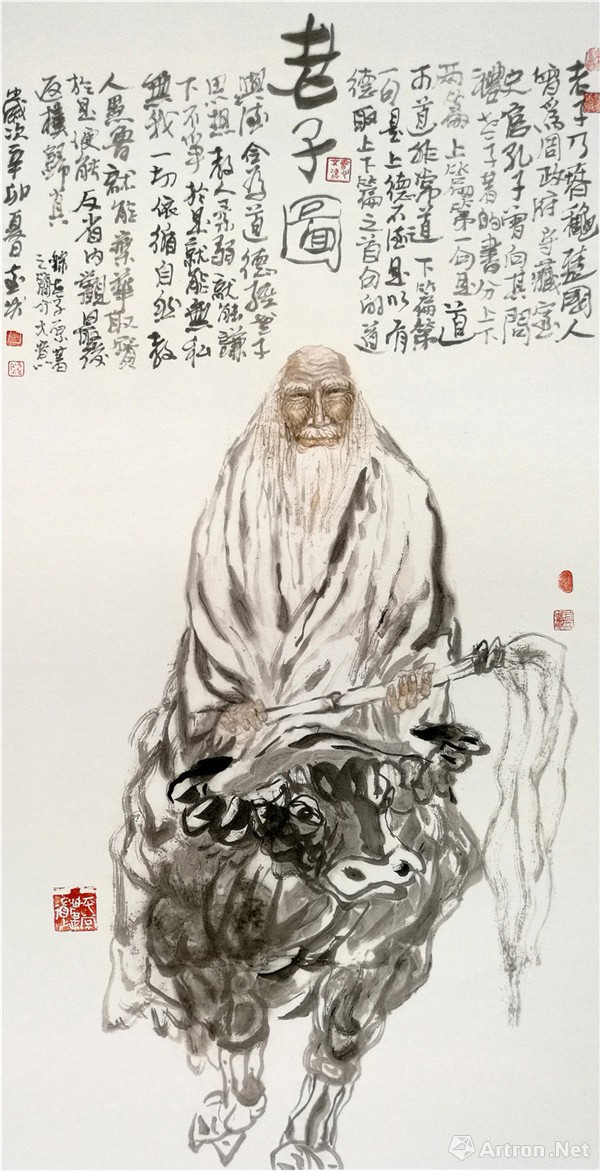 老子圖
老子乃春穐楚國人
曾爲周政府守藏室
史官孔子曾向其問
禮老子著的書分上下
兩篇上篇第一句是道
可道非常道下篇第
一句是上德不德是以有
德取上下篇之首句的道
與德合爲道德經老子
思想教人柔弱就能謙
下不爭於是就能無私
無我一切依循自然教
人愚魯就能棄華取實
於是便能反省內觀最後
返樸歸真
歲次辛卯夏
Artron.Net